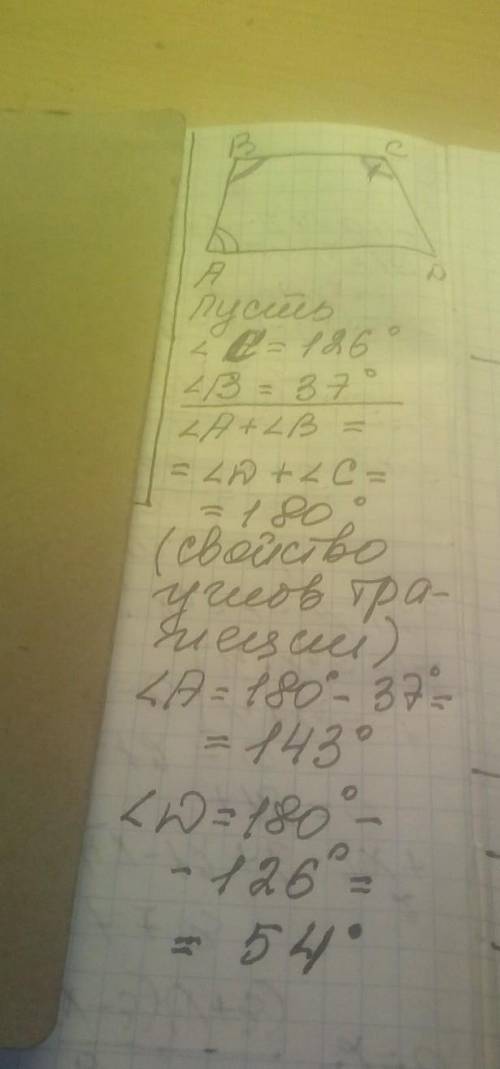 B C
A D
Пусть
∠C = 126°
∠B = 37°
∠A + ∠B =
= ∠D + ∠C =
= 180°
(свойство
углов тра-
пеции)
∠A = 180° - 37° =
= 143°
∠D = 180° -
- 126° =
= 54°